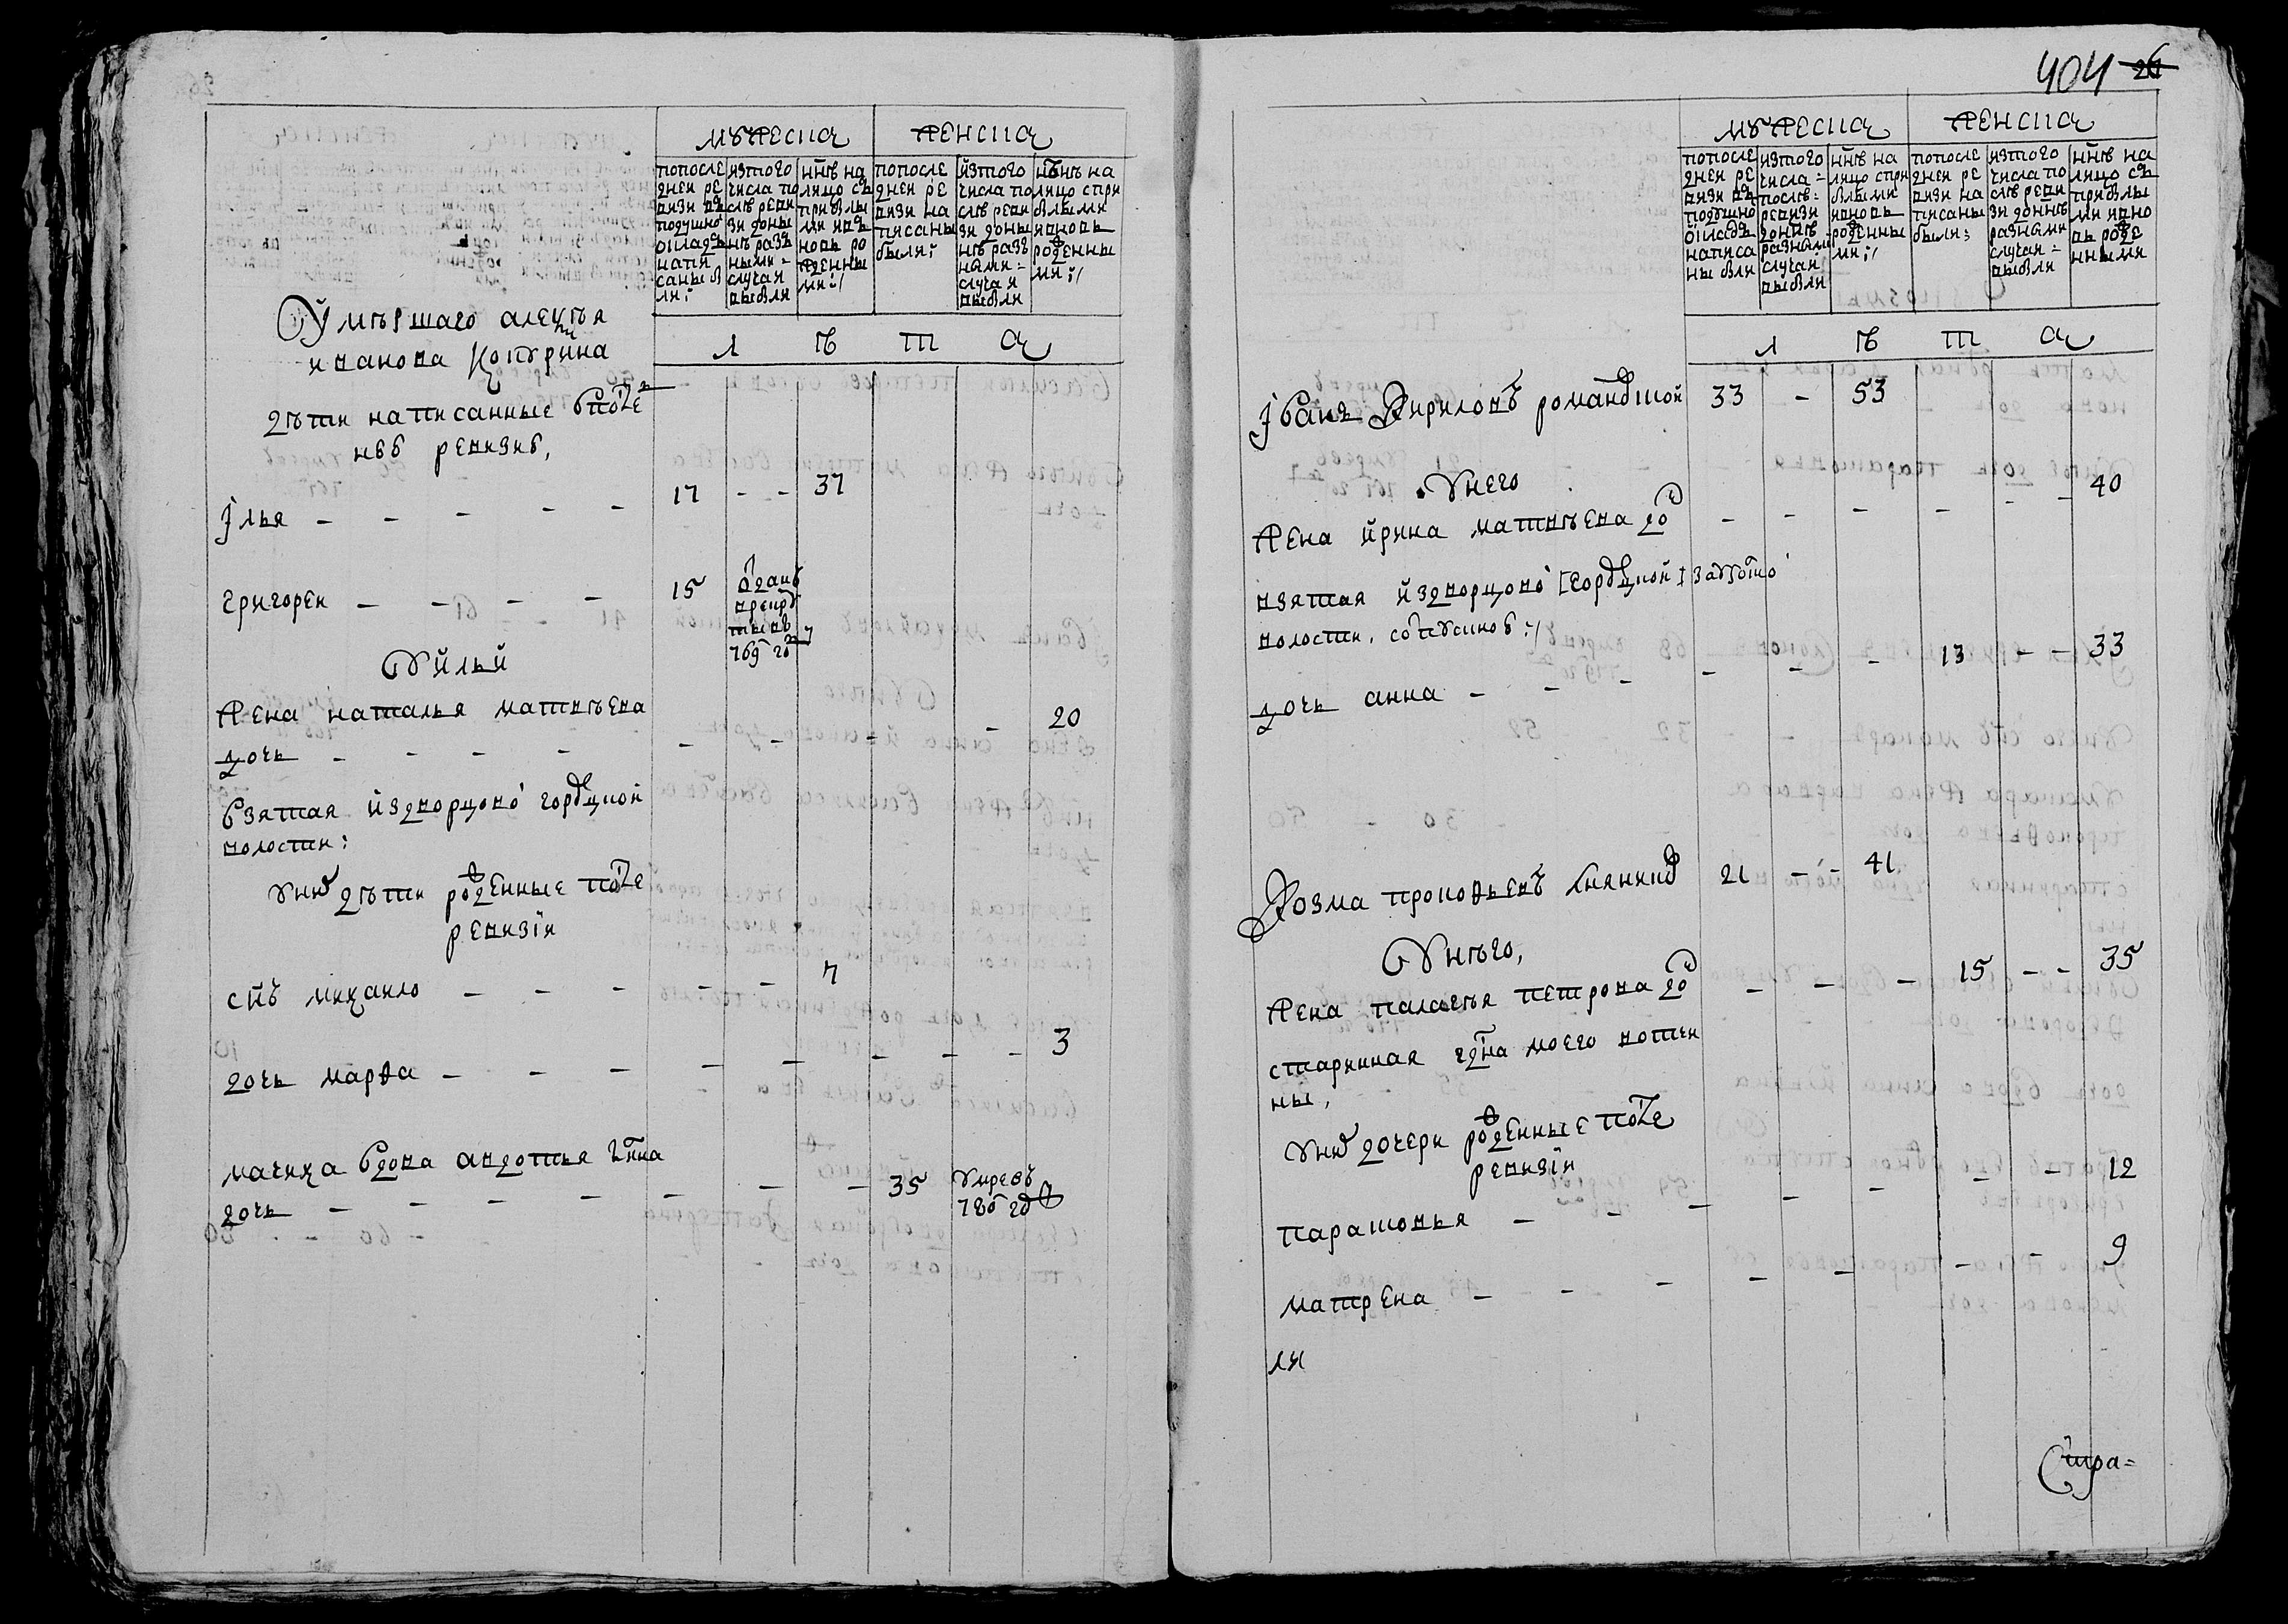 мужеска
женска
попосле
днеи ре
визи въ
подушно
окладъ
напи
саны б
ли;
изтого
числа по
слѣ реви
зи доны
нѣ разъ
ными
случаи
выбли
ннѣ на
лицо съ
прибылы
ми ивъ
новь ро
жденны
ми
попосле
днеи ре
визи на
писаны
были;
изтого
числа по
слѣ реви
зи доны
нѣ разъ
ными
случаи
выбли
ннѣ на
лицо спри
былыми
ивновь
рожденны
ми
л ѣ т а
Умѣршаго алекѣя
иванова
дѣти написанные
ревизиі,
Јлья - - - - - 17 - - 37
григореи - - - - 15
отдавъ
врекру
ты въ
769 го
Уильи
жена наталья матвѣева
дочь - - - - - - - - 20
взятая издворцово
волости;
унихъ дѣти рожденные после
ревизіи
снъ михаило - - - - - 7
дочь марѳа - - - - - - - - 3
мачиха вдова авдотья
дочь - - - - - - - 35
умрева
780 году
404 26
мужеска
женска
попосле
днеи ре
визи въ
подушно
окладъ
написа
ны бли
изтого
числа
послѣ
ревизи
доннѣ
разными
случаи
выбли
ннѣ на
лицо спри
былыми
ивновь
рожденны
ми
попосле
днеи ре
визи на
писаны
были;
изтого
числа по
слѣ реви
зи доннѣ
разными
случаи
выбли
ннѣ на
лицо съ
прибылы
ми ивно
вь рожде
нными
л ѣ т а
Јванъ Кириловъ 33 - 53
Унего
жена ирина матвѣева до - - - - - - 40
взятая издворцово
волости,
дочь анна - - - - - - 13 - - 33
Козма прокоѳьевъ 21 - - 41
Унѣго,
жена палагѣя петрова до - - - 15 - - 35
старинная моего вотчи
ны,
унихъ дочери рожденные после
ревизіи
парашовья - - - - - - - 12
матрена - - - - - - - - 9
Стра=